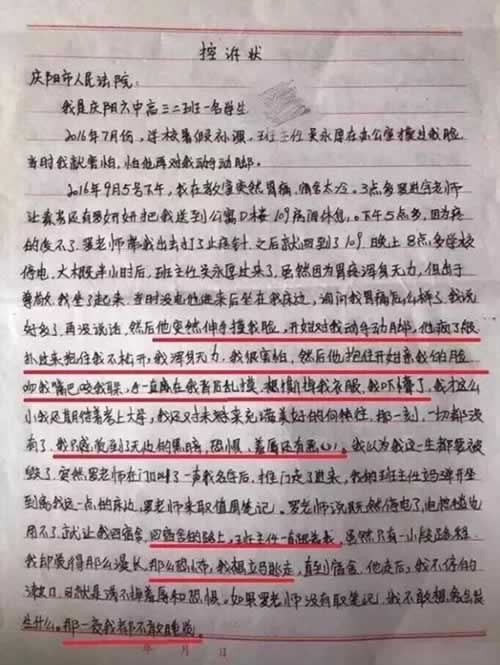 控诉状
庆阳市人民法院:
我是庆阳六中高三二班一名学生
2016年7月份,学校暑假补课,班主任吴永厚在办公室摸过我脸
当时我就害怕,怕他再对我动手动脚。
2016年9月5号下午,我在教室突然胃痛,
3点多
老师
让
把我送到公寓D楼109房间休息。下午5点多,因为疼
的受不了,罗老师带我出去打了止疼针,之后就回到了109。晚上8点多学校
停电,大概半小时后,班主任吴永厚过来了,虽然因为胃疼浑身无力,但出于
尊敬,我坐了起来,当时没电他进来后坐在我床边,询问我胃痛怎么样了,我说
好多了,再没说话,然后他突然伸手摸我脸,开始对我动手动脚,他疯了般
扑过来抱住我不松开,我浑身无力,我很害怕,然后他抱住开始亲我的脸
吻我嘴巴咬我耳朵,手一直在我背后乱摸,想撕掉我衣服,我吓懵了,我才这么
小我还期待着考上大学,我还对未来充满美好的向往,那一刻,一切都没
有了,我只感觉到了无边的黑暗,恐惧、羞辱还有恶心,我以为我这一生都要被
毁了,突然罗老师在门口叫了一声我名字后,推门走了进来,我的班主任
弹开坐
到离我远一点的床边,罗老师来取值周笔记。罗老师说既然停电了,电热毯也
用不了,就让我回宿舍,回宿舍的路上,班主任一直跟着我,虽然只有一小段路程
我却觉得那么漫长,那么恐怖,我想立马逃走,直到宿舍,他走后,我不停的
漱口,可就是洗不掉羞辱和恐惧。如果罗老师没有取笔记,我不敢想我会发
生什么。那一夜我都不敢睡觉。
年 月 日